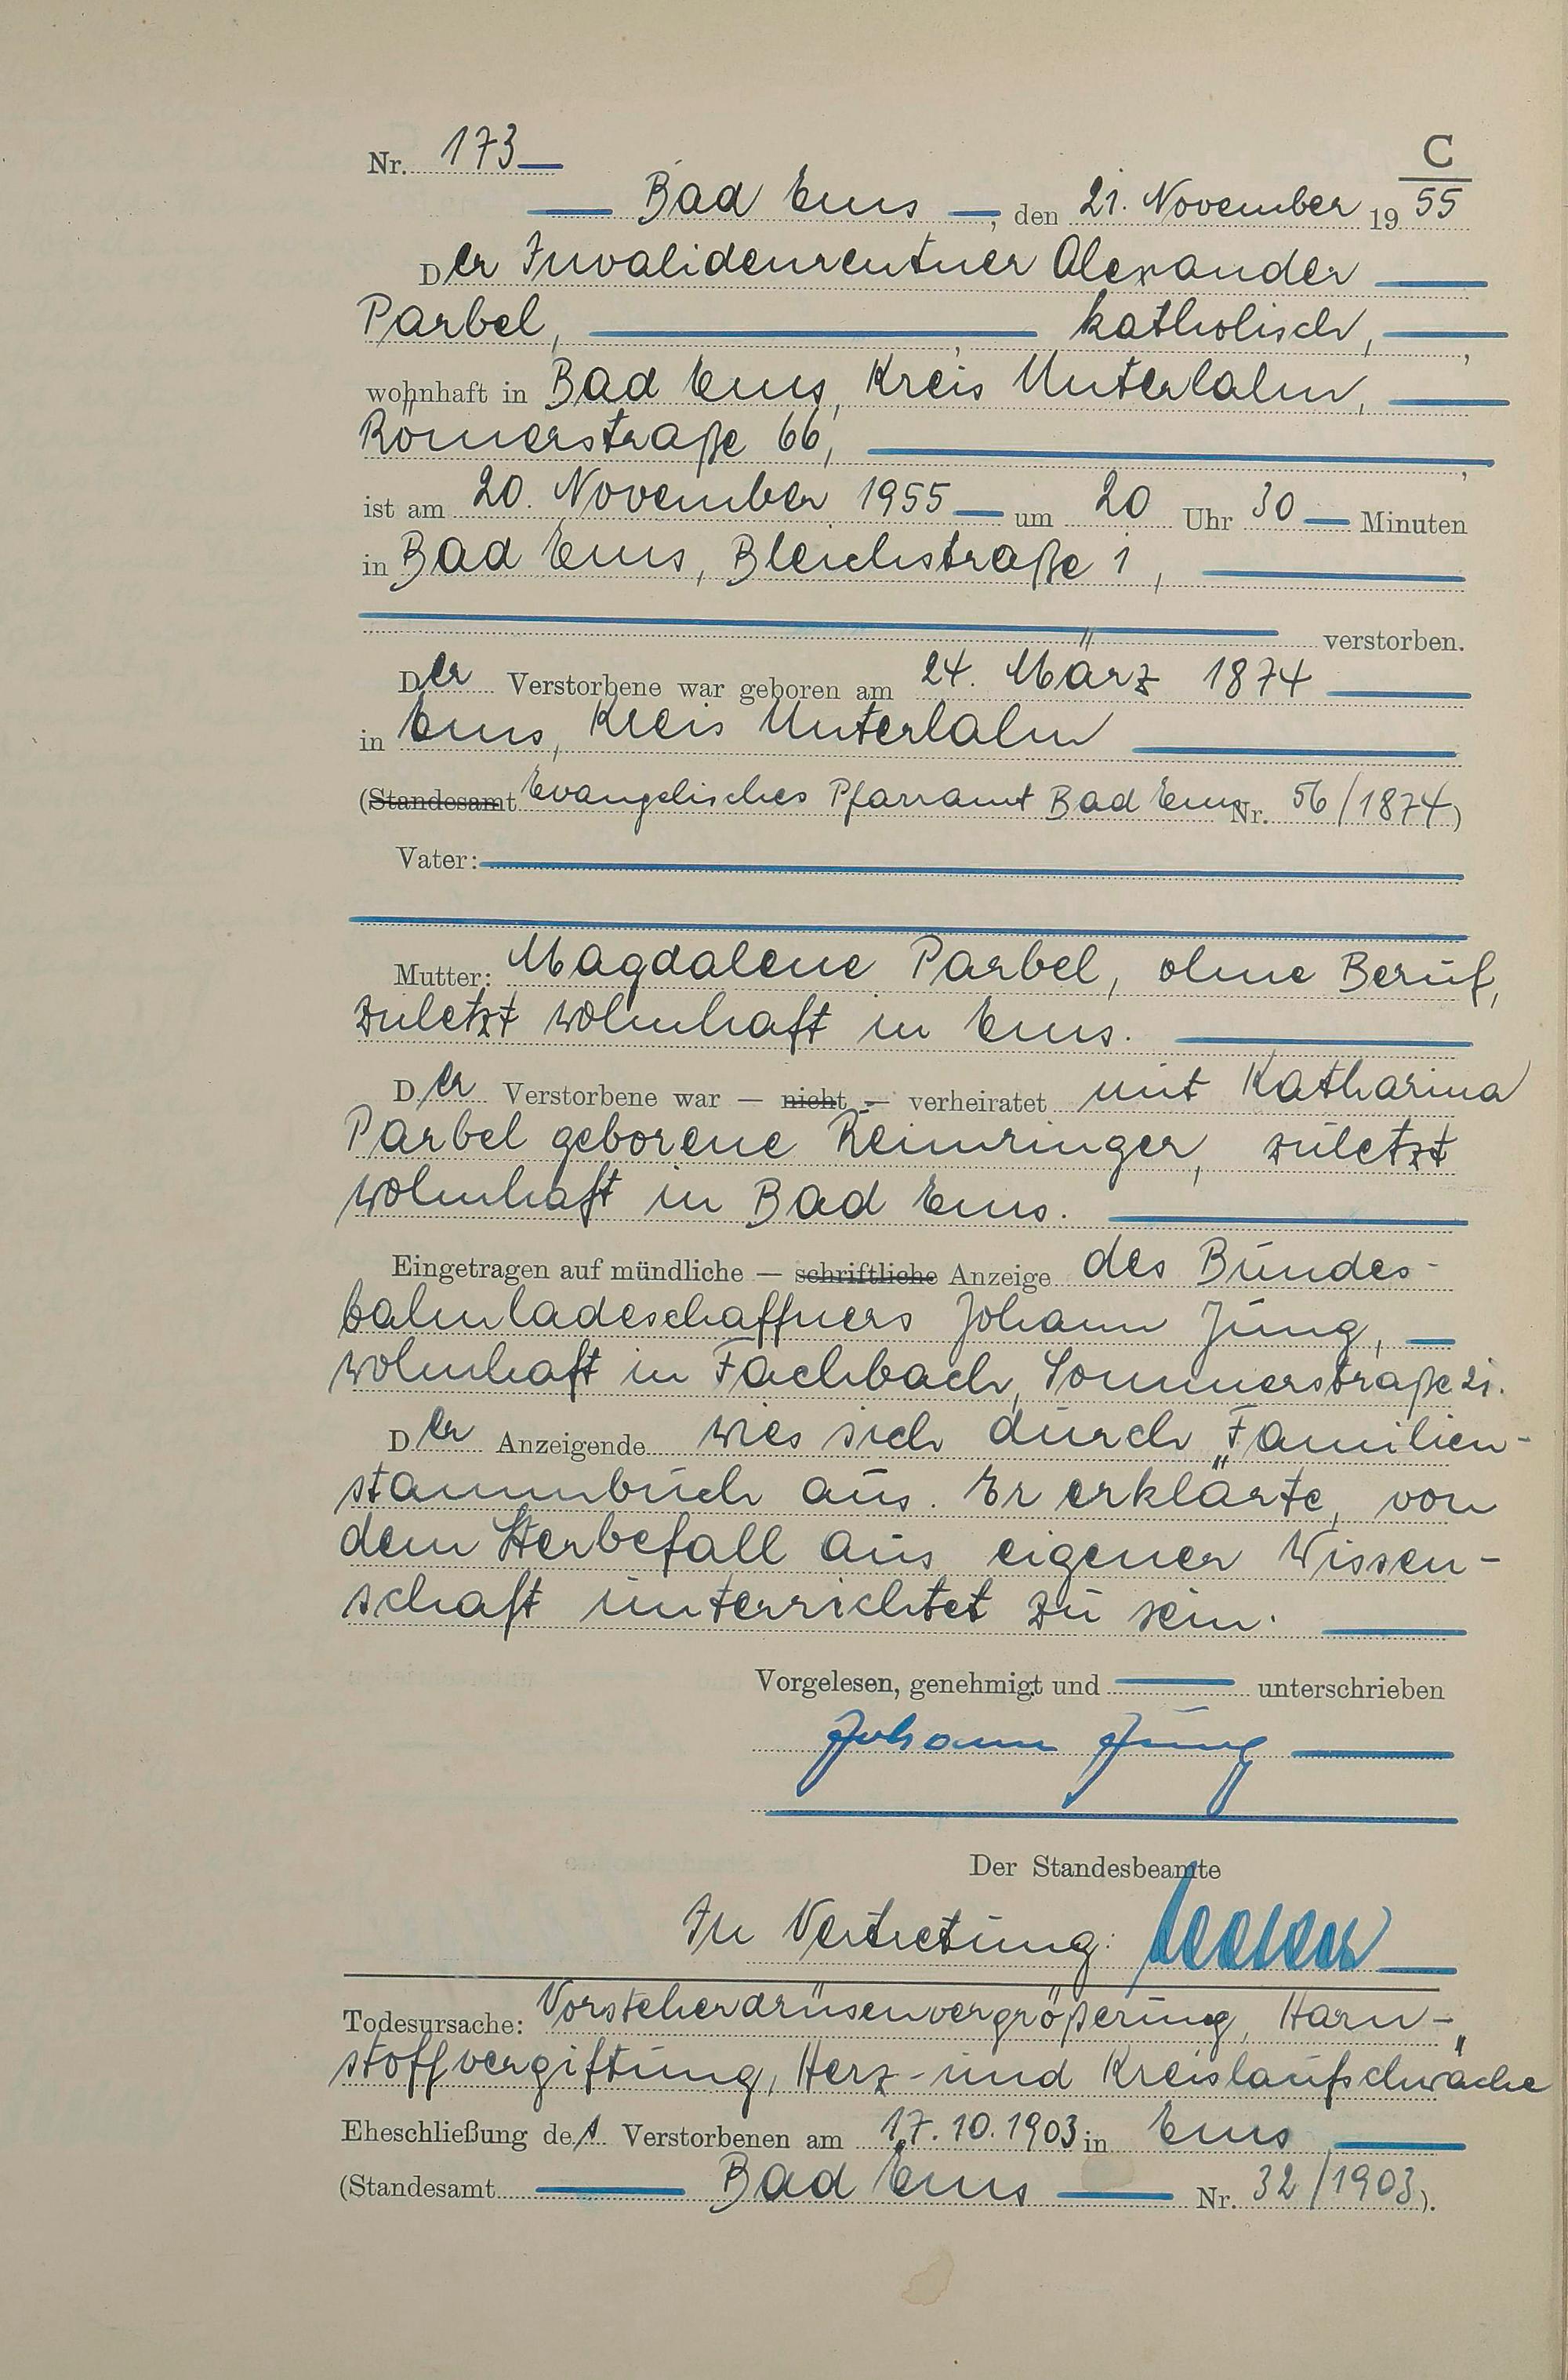 Nr. 173 C
Bad Ems, den 21. November 1955
Der Invalidenrentner Alexander
Parbel, , katholisch, ,
wohnhaft in Bad Ems, Kreis Unterlahn,
Römerstraße 66, ,
ist am 20. November 1955 um 20 Uhr 30 Minuten
in Bad Ems, Bleichstraße 1,
verstorben.
Der Verstorbene war geboren am 24. März 1874
in Ems, Kreis Unterlahn
(Standesamt Evangelisches Pfarramt Bad Ems Nr. 56/1874)
Vater:
Mutter: Magdalene Parbel, ohne Beruf,
zuletzt wohnhaft in Ems.
Der Verstorbene war — nicht — verheiratet mit Katharina
Parbel geborene Reinringer, zuletzt
wohnhaft in Bad Ems.
Eingetragen auf mündliche — schriftliche Anzeige des Bundes-
bahnladeschaffners Johann Jung,
wohnhaft in Fachbach, Sommerstraße 21.
Der Anzeigende wies sich durch Familien-
stammbuch aus. Er erklärte, von
dem Sterbefall aus eigener Wissen-
schaft unterrichtet zu sein.
Vorgelesen, genehmigt und unterschrieben
Johann Jung
Der Standesbeamte
In Vertretung:
Todesursache: Vorsteherdrüsenvergrößerung, Harn-
stoffvergiftung, Herz- und Kreislaufschwäche
Eheschließung des Verstorbenen am 17.10.1903 in Ems
(Standesamt Bad Ems Nr. 32/1903).